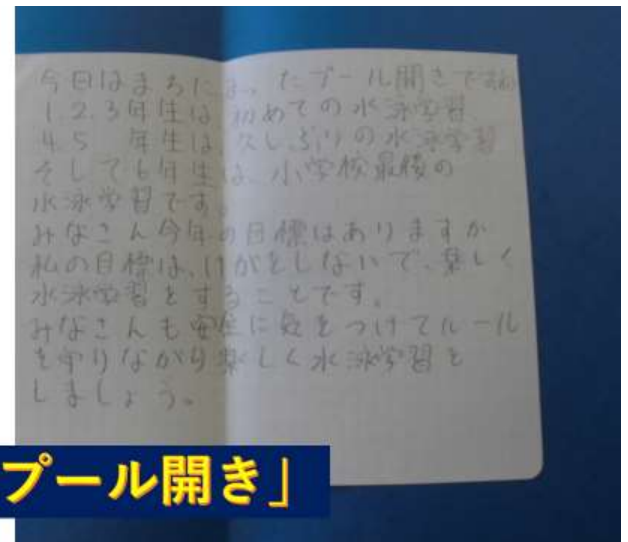 今日はまちにまったプール開きですね
1.2.3年生は初めての水泳学習
4.5 年生は、久しぶりの水泳学習
そして6年生は、小学校最後の
水泳学習です。
みなさん今年の目標はありますか
私の目標は、けがをしないで、楽しく
水泳学習をすることです。
みなさんも安全に気をつけてルール
を守りながら楽しく水泳学習を
しましょう。
プール開き」